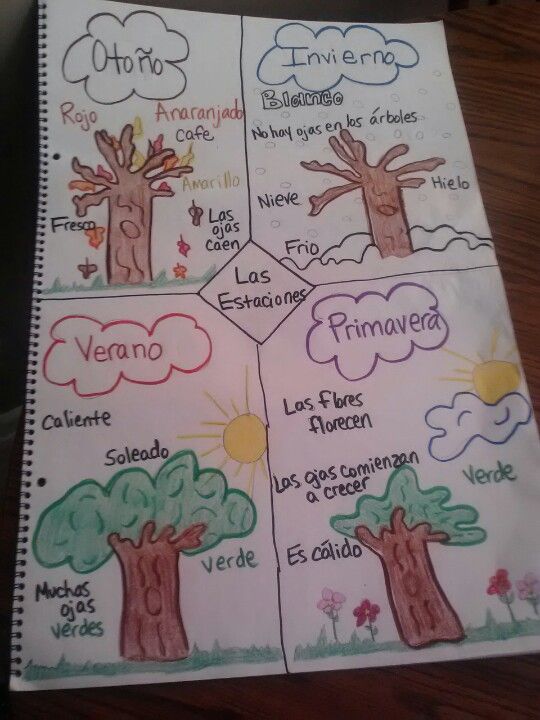 Otoño
Rojo
Anaranjado
cafe
Amarillo
Fresco
Las
ojas
caen
Invierno
Blanco
No hay ojas en los árboles
Nieve
Hielo
Frio
Las
Estaciones
Verano
Caliente
Soleado
verde
Muchas
ojas
verdes
Primavera
Las flores
florecen
Las ojas comienzan
a crecer
verde
Es cálido